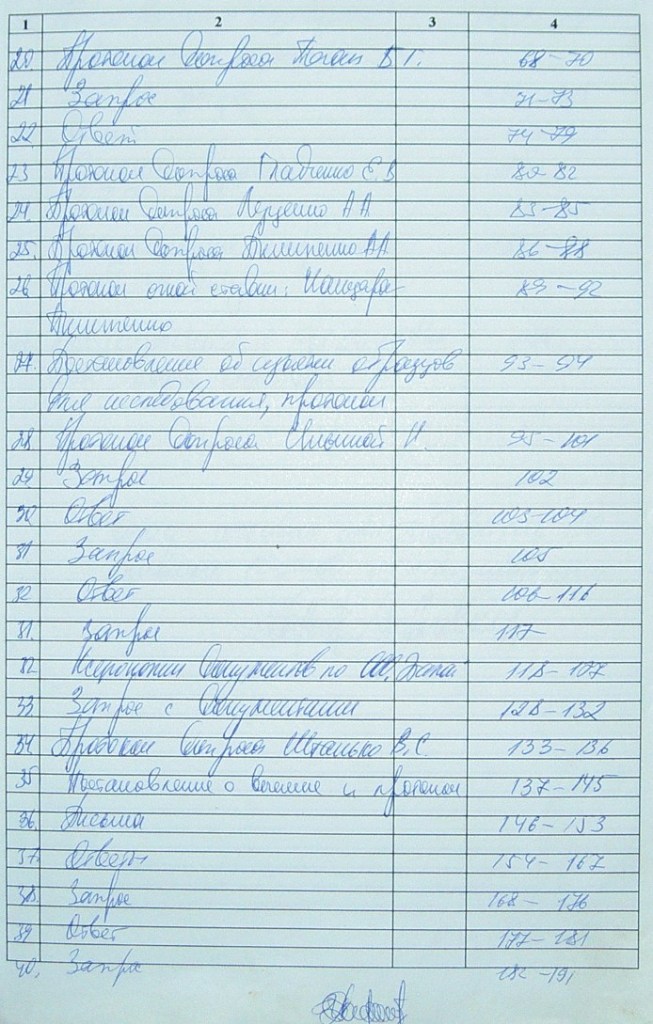 1 2 3 4
20 Протокол допроса Б Г. 68-70
21 Запрос 71-73
22 Ответ 74-79
23 Протокол допроса Гладченко Е.В 80-82
24. Протокол допроса Луценко А А 83-85
25. Протокол допроса Пилипенко АА 86-88
26 Протокол очной ставки: 89-92
Пилипенко
27. Постановление об изъятии образцов 93-94
для исследования, протокол
28 Протокол допроса Ильиной И. 95-101
29 Запрос 102
30 Ответ 103-104
31 Запрос 105
32 Ответ 106-116
31. Запрос 117
32. Ксерокопии документов по ООО 118-127
33. Запрос с документами 128-132
34. Протокол допроса Штанько В.С. 133-136
35 Постановление о выемке и протокол 137-145
36. Письма 146-153
37. Ответы 154-167
38. Запрос 168-176
39 Ответ 177-181
40. Запрос 182-191